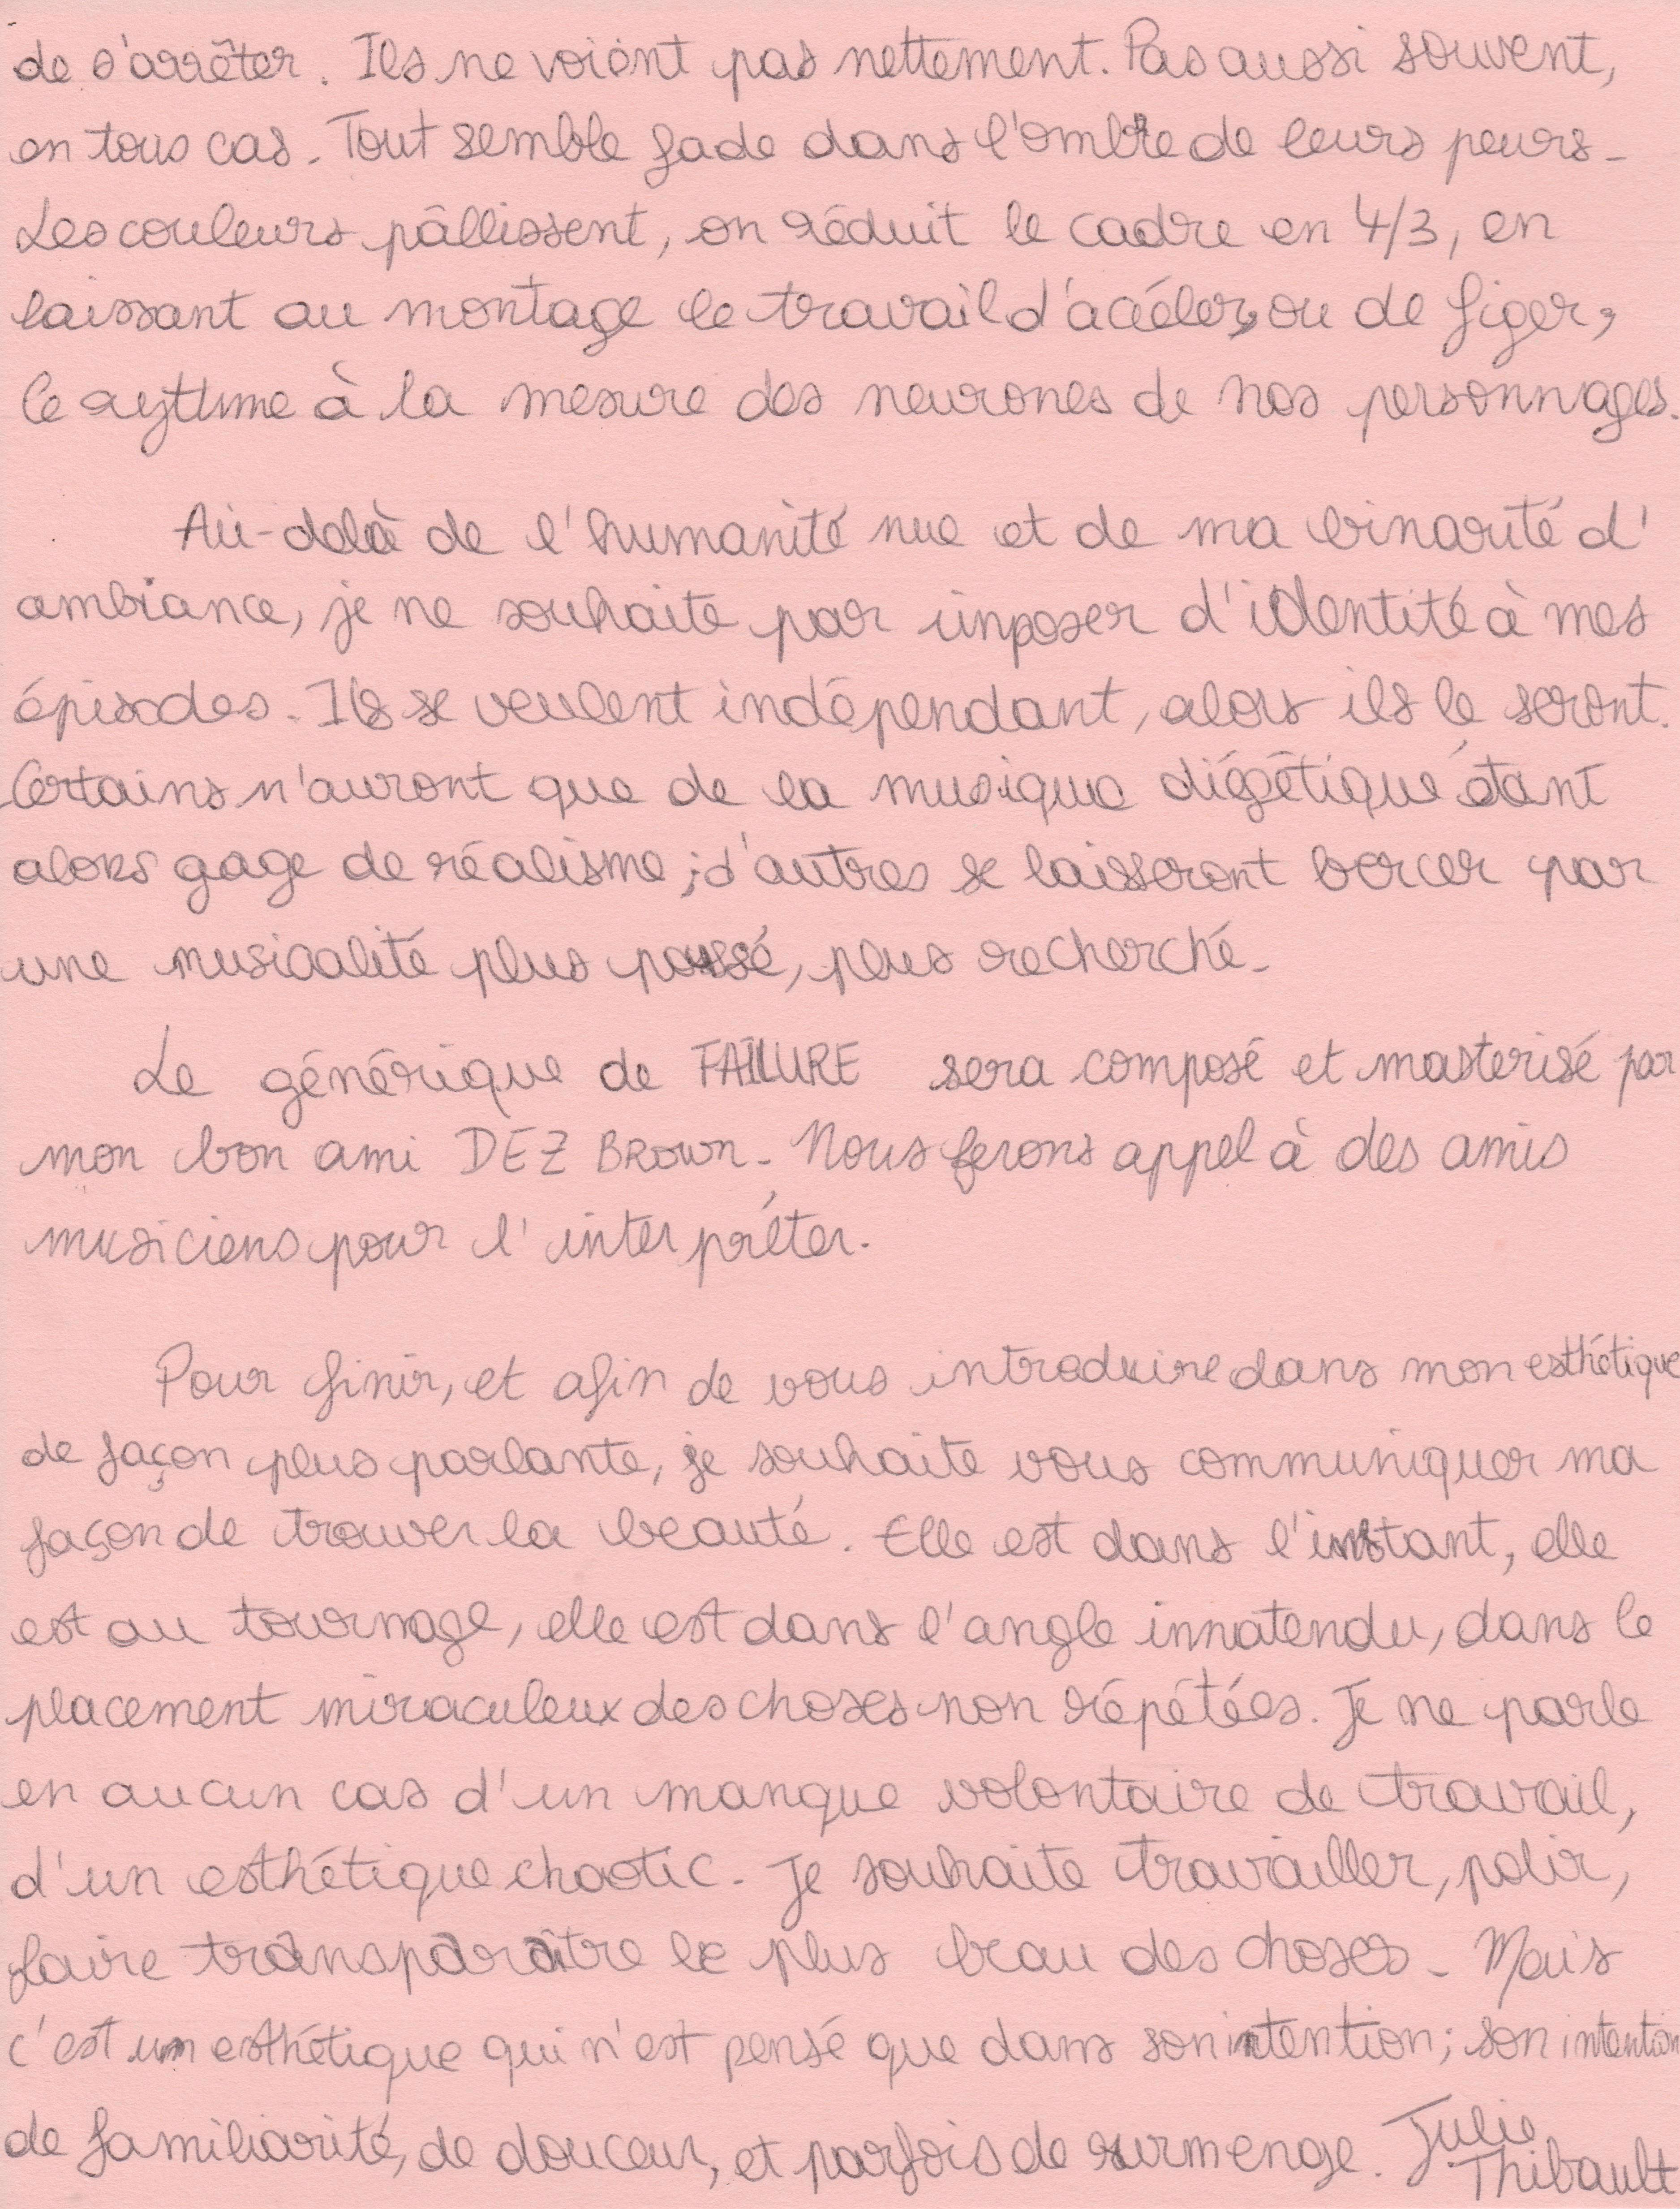 de s'arrêter. Ils ne voiont pas nettement. Pas aussi souvent,
en tous cas. Tout semble fade dans l'ombre de leurs peurs.
Les couleurs pâllissent, on réduit le cadre en 4/3, en
laissant au montage le travail d'accéler, ou de figer,
le rythme à la mesure des neurones de nos personnages.
Au-delà de l'humanité nue et de ma binarité d'
ambiance, je ne souhaite par imposer d'identité à mes
épisodes. Ils se veulent indépendant, alors ils le seront.
Certains n'auront que de la musique diégétique étant
alors gage de réalisme ; d'autres se laisseront bercer par
une musicalité plus poussé, plus recherché.
Le générique de FAILURE sera composé et masterisé par
mon bon ami DEZ BROWN. Nous ferons appel à des amis
musiciens pour l'interpréter.
Pour finir, et afin de vous introduire dans mon esthétique
de façon plus parlante, je souhaite vous communiquer ma
façon de trouver la beauté. Elle est dans l'instant, elle
est au tournage, elle est dans l'angle innatendu, dans le
placement miraculeux des choses non répétées. Je ne parle
en aucun cas d'un manque volontaire de travail,
d'un esthétique chaotic. Je souhaite travailler, polir,
faire transparaître le plus beau des choses. Mais
c'est un esthétique qui n'est pensé que dans son intention ; son intention
de familiarité, de douceur, et parfois de surmenge. Julie
Thibault